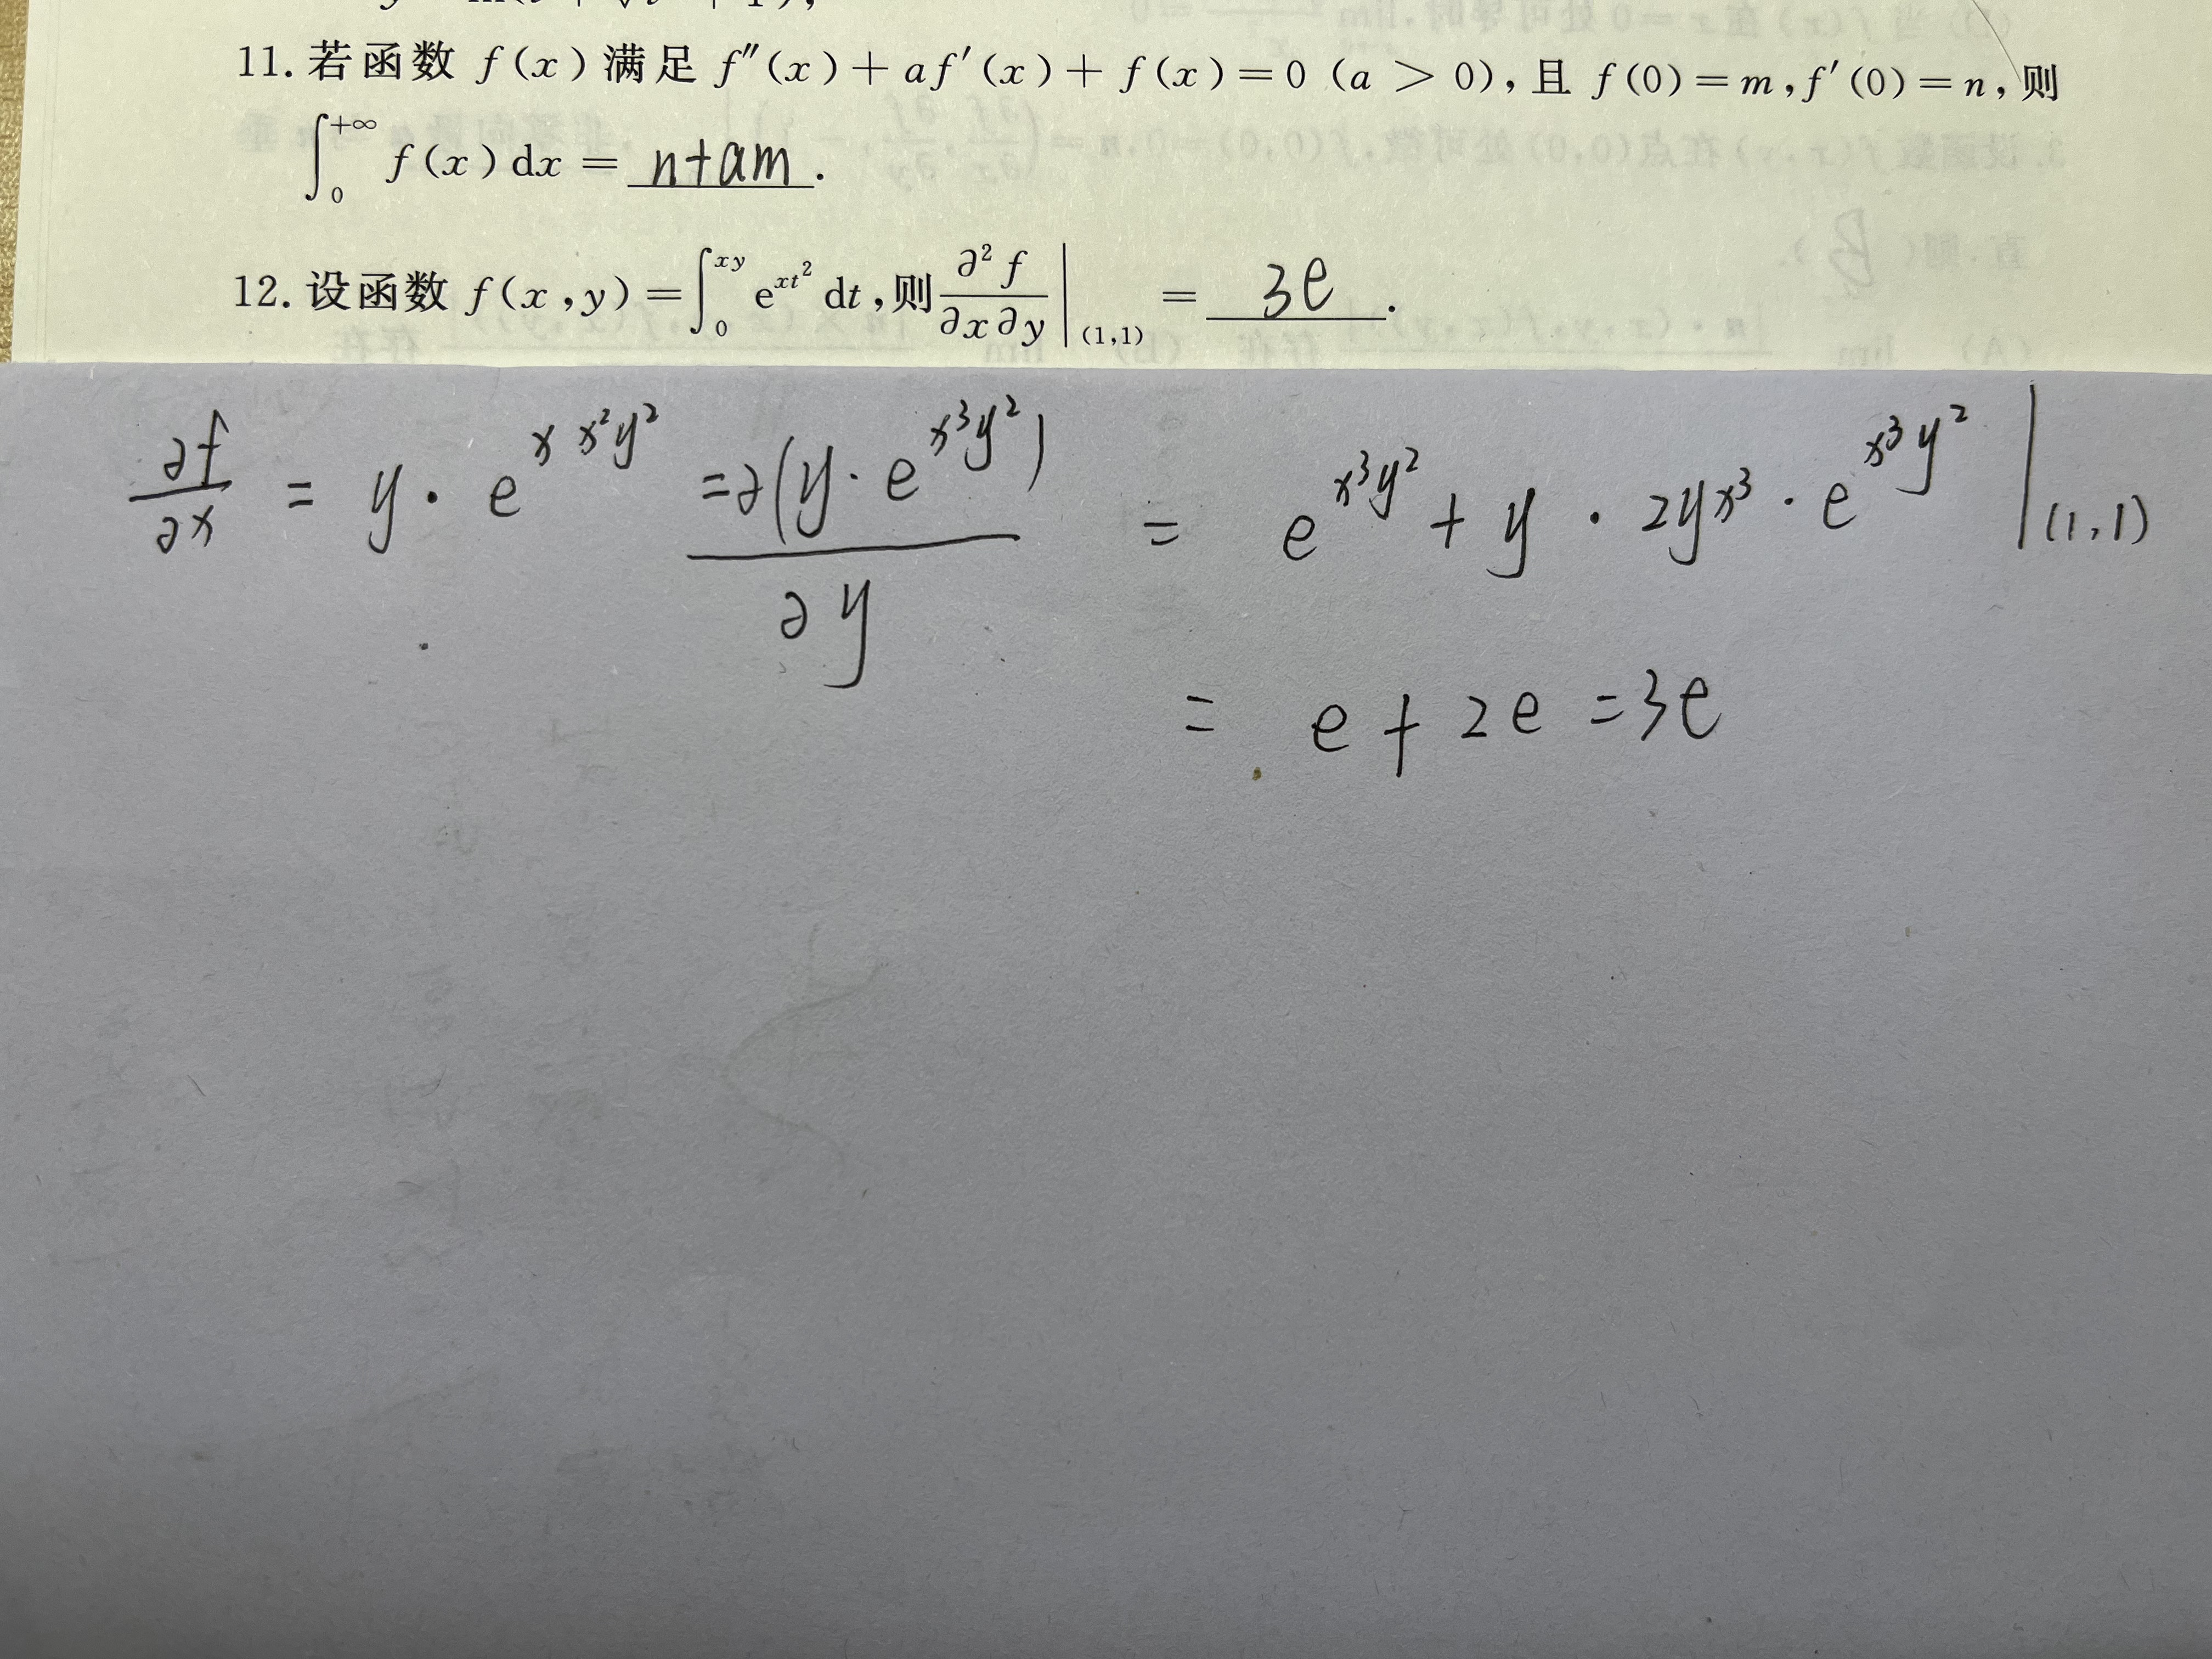 11. 若函数 f(x)满足 f″(x)+af′(x)+f(x)=0 (a > 0), 且 f(0)=m, f′(0)=n, 则
∫₀^{+∞} f(x)dx = n+am .
12. 设函数 f(x,y)=∫₀^{xy} e^{xt²} dt, 则 ∂²f/∂x∂y |_(1,1) = 3e .
∂f/∂x = y · e^{x x²y²} = ∂(y · e^{x³y²})/∂y = e^{x³y²} + y · 2yx³ · e^{x³y²} |_(1,1)
= e + 2e = 3e